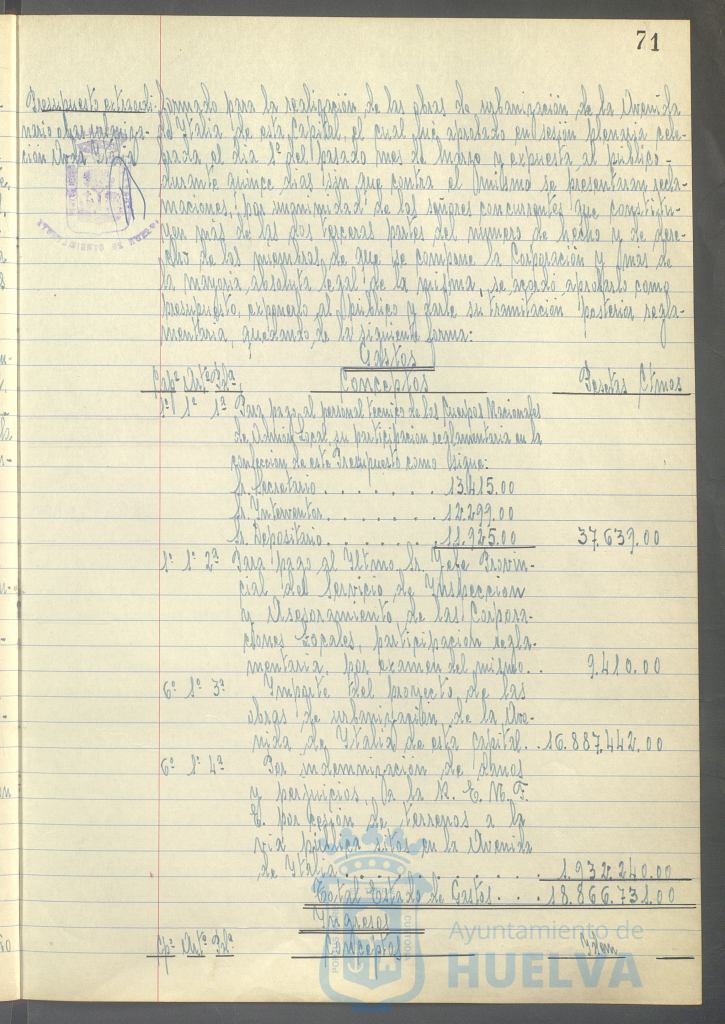 71
Presupuesto extraordi-
nario obras urbaniza-
ción Avda. Italia
formado para la realización de las obras de urbanización de la Avenida
de Italia de esta Capital, el cual fue aprobado en sesión plenaria cele-
brada el día 1º del pasado mes de Marzo y expuesta al público
durante quince dias sin que contra el mismo se presentaran recla-
maciones, por unanimidad de los señores concurrentes que constitu-
yen más de las dos terceras partes del número de hecho y de dere-
cho de los miembros de que se compone la Corporación y más de
la mayoria absoluta legal de la misma, se acordó aprobarlo como
presupuesto, exponerlo al público y darle su tramitación posterior regla-
mentaria, quedando de la siguiente forma:
Gastos
Capº Artº Pdª Conceptos Pesetas Ctmos
1º 1º 1ª Para pago al personal tecnico de los Cuerpos Nacionales
de Admon Local, su participación reglamentaria en la
confección de este Presupuesto como sigue:
Sr. Secretario . . . . . . . 13.415.00
Sr. Interventor . . . . . . . 12.299.00
Sr. Depositario . . . . . . . 11.925.00 37.639.00
1º 1º 2ª Para pago al Iltmo. Sr. Jefe Provin-
cial del Servicio de Inspección
y Asesoramiento de las Corpora-
ciones Locales, participación regla-
mentaria, por examen del mismo. . 9.410.00
6º 1º 3ª Importe del proyecto de las
obras de urbanización de la Ave-
nida de Italia de esta Capital. . 16.887.442.00
6º 1º 4ª Por indemnización de daños
y perjuicios, a la R. E. N. F.
E. por cesión de terrenos a la
via pública sitos en la Avenida
de Italia . . . . . . . . . . . . . 1.932.240.00
Total Estado de Gastos . . . . 18.866.731.00
Ingresos
Cpº Artº Pdª Conceptos Idem
Ayuntamiento de
HUELVA